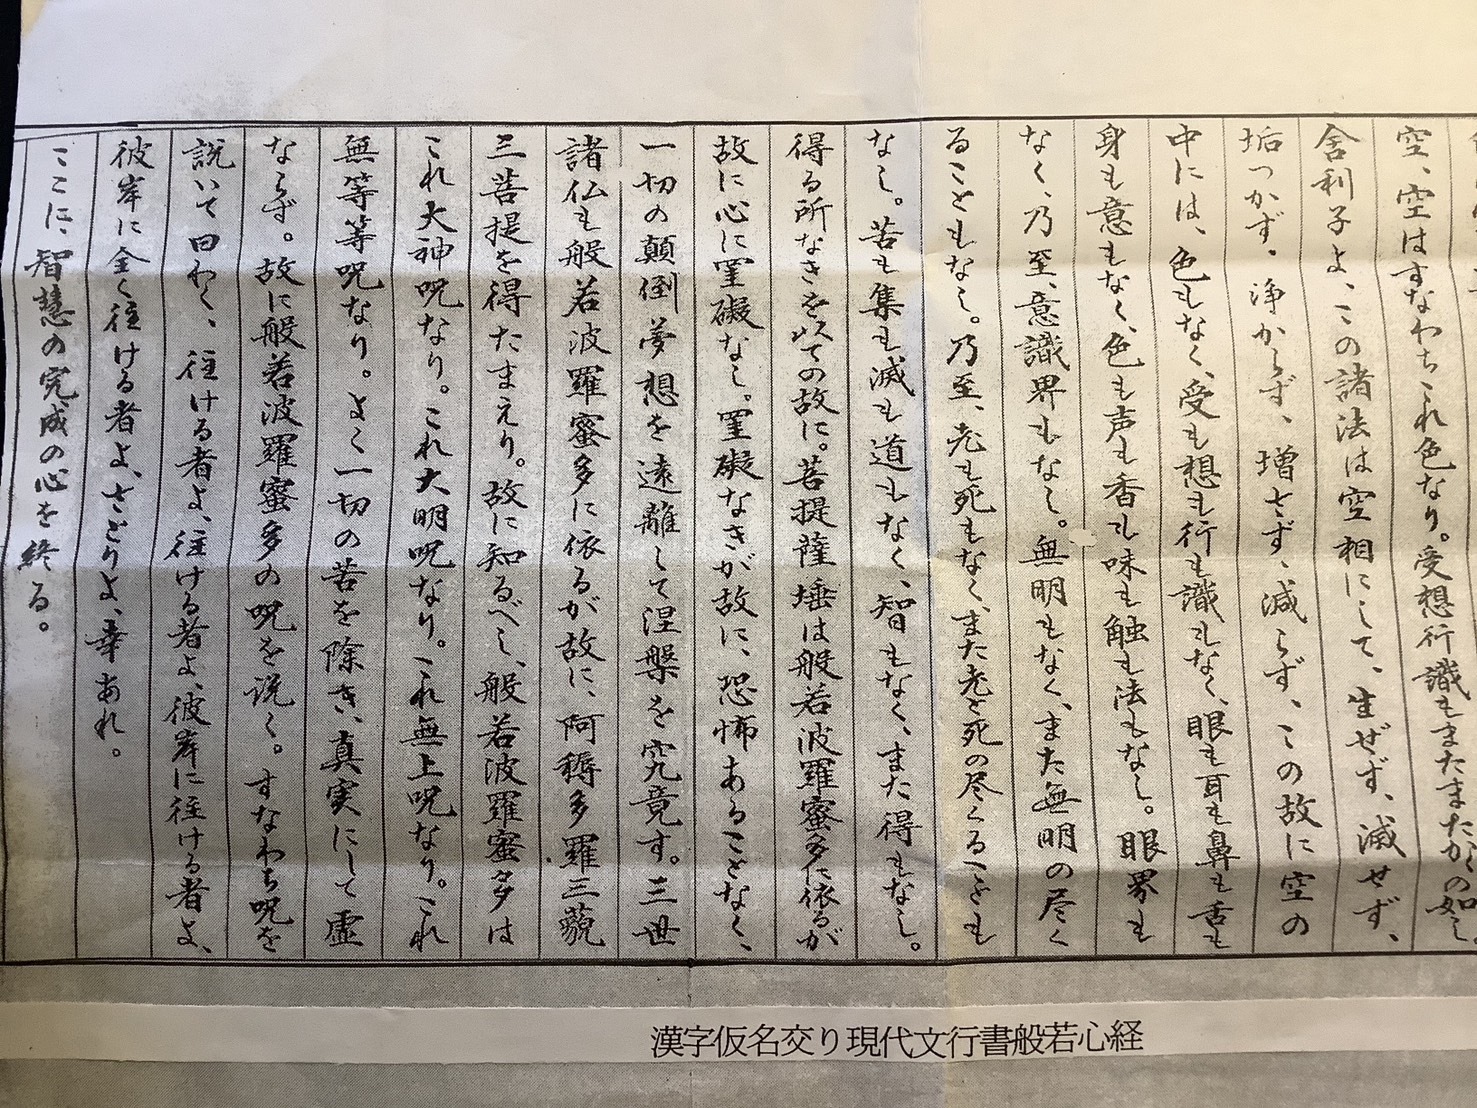 空、空はすなわちこれ色なり。受想行識もまたまたかくの如し。
舎利子よ、この諸法は空相にして、生ぜず、滅せず、
垢つかず、浄からず、増さず、減らず、この故に空の
中には、色もなく、受も想も行も識もなく、眼も耳も鼻も舌も
身も意もなく、色も声も香も味も触も法もなし。眼界も
なく、乃至、意識界もなし。無明もなく、また無明の尽く
ることもなし。乃至、老も死もなく、また老と死の尽くることも
なし。苦も集も滅も道もなく、智もなく、また得もなし。
得る所なきを以ての故に。菩提薩埵は般若波羅蜜多に依るが
故に心に罣礙なし。罣礙なきが故に、恐怖あることなく、
一切の顛倒夢想を遠離して涅槃を究竟す。三世
諸仏も般若波羅蜜多に依るが故に、阿耨多羅三藐
三菩提を得たまえり。故に知るべし、般若波羅蜜多は
これ大神呪なり。これ大明呪なり。これ無上呪なり。これ
無等等呪なり。よく一切の苦を除き、真実にして虚
ならず。故に般若波羅蜜多の呪を説く。すなわち呪を
説いて曰わく、往ける者よ、往ける者よ、彼岸に往ける者よ、
彼岸に全く往ける者よ、さとりよ、幸あれ。
ここに、智慧の完成の心を終る。
漢字仮名交り現代文行書般若心経